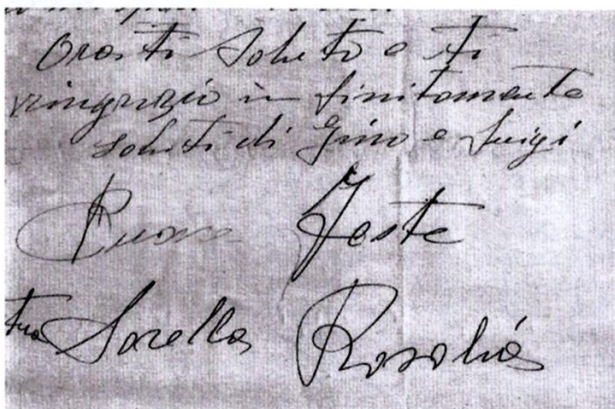 Ora ti saluto e ti
ringrazio in finitamente
saluti di Gino e Luigi
Buone Feste
tua Sorella Rosalia